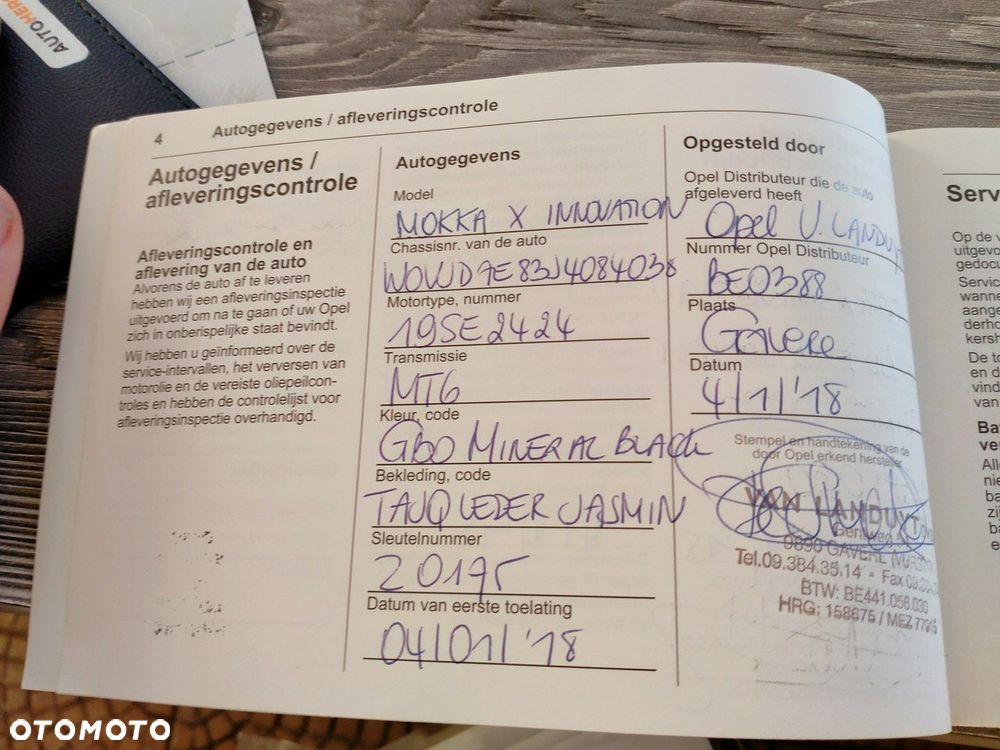 AUTOHERO
4
Autogegevens / afleveringscontrole
Autogegevens /
afleveringscontrole
Afleveringscontrole en
aflevering van de auto
Alvorens de auto af te leveren
hebben wij een afleveringsinspectie
uitgevoerd om na te gaan of uw Opel
zich in onberispelijke staat bevindt.
Wij hebben u geïnformeerd over de
service-intervallen, het verversen van
motorolie en de vereiste oliepeilcon-
troles en hebben de controlelijst voor
afleveringsinspectie overhandigd.
Autogegevens
Model
MOKKA X INNOVATION
Chassisnr. van de auto
W0VJD7E83J4084038
Motortype, nummer
19SE2424
Transmissie
MT6
Kleur, code
GB0 MINERAL BLACK
Bekleding, code
TAJQ LEDER JASMIN
Sleutelnummer
20195
Datum van eerste toelating
04/01/'18
Opgesteld door
Opel Distributeur die de auto
afgeleverd heeft
Opel V. LANDUYT
Nummer Opel Distributeur
BE0388
Plaats
Gavere
Datum
4/1/'18
Stempel en handtekening van de
door Opel erkend hersteller
VAN LANDUYT
9890 GAVERE
Tel.09.384.35.14 - Fax 09.
BTW: BE441.056.030
HRG: 158675 / MEZ 77915
Serv
Op de v
uitgevo
gedocu
Servic
wanne
aange
derho
kersh
De to
en d
vind
van
Ba
ve
All
nie
ba
zij
ba
e
OTOMOTO